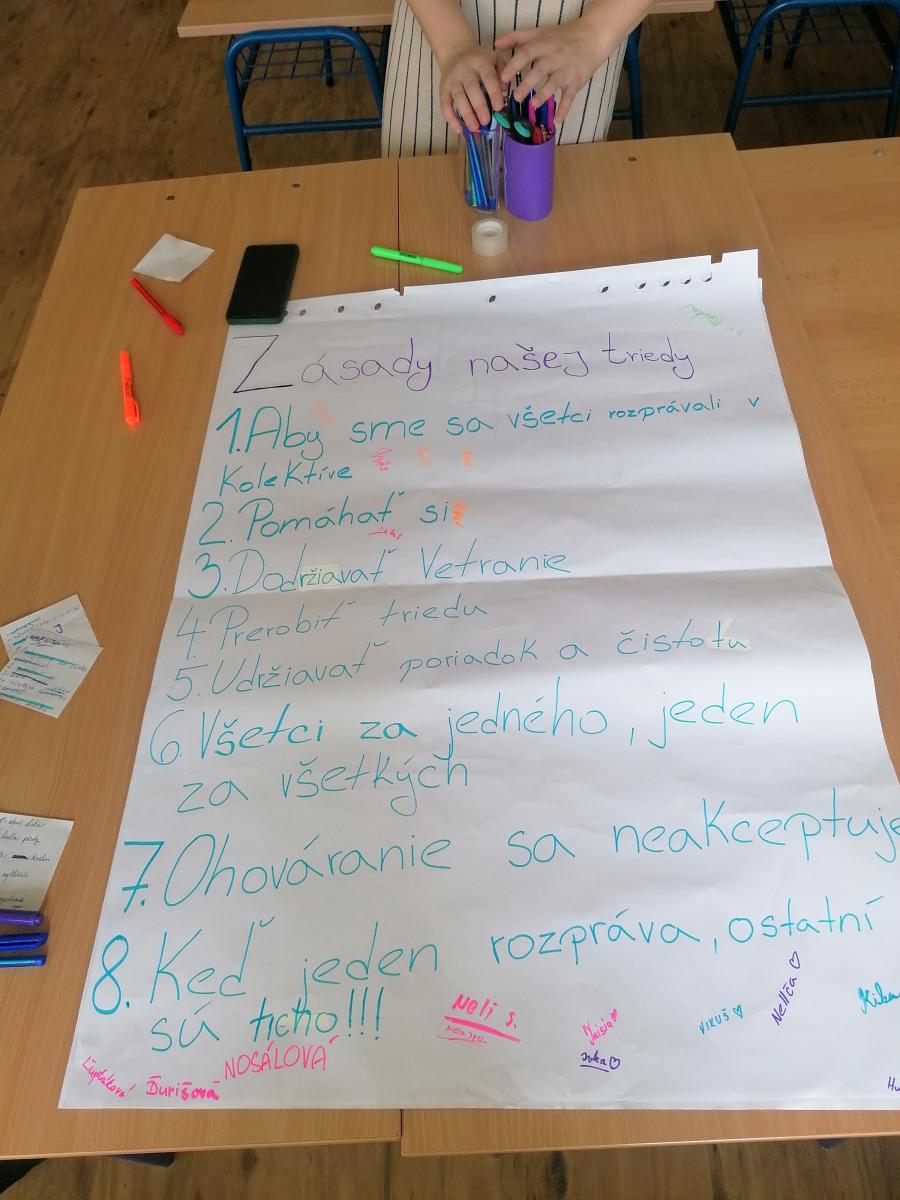 Zásady našej triedy
1. Aby sme sa všetci rozprávali v
Kolektíve
2. Pomáhať si
3. Dodržiavať Vetranie
4. Prerobiť triedu
5. Udržiavať poriadok a čistotu
6. Všetci za jedného, jeden
za všetkých
7. Ohováranie sa neakceptuje
8. Keď jeden rozpráva, ostatní
sú ticho!!!
Neli S.
VIKUŠ
Nellča
NOSÁLOVÁ
Ďurišová